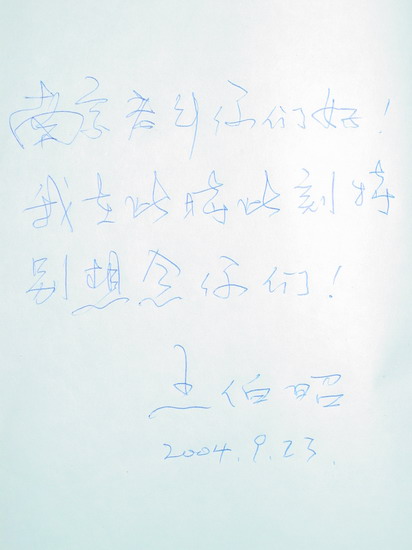 南京你们好！
我在此時此刻特
别想念你们！
王伯昭
2004.9.23.